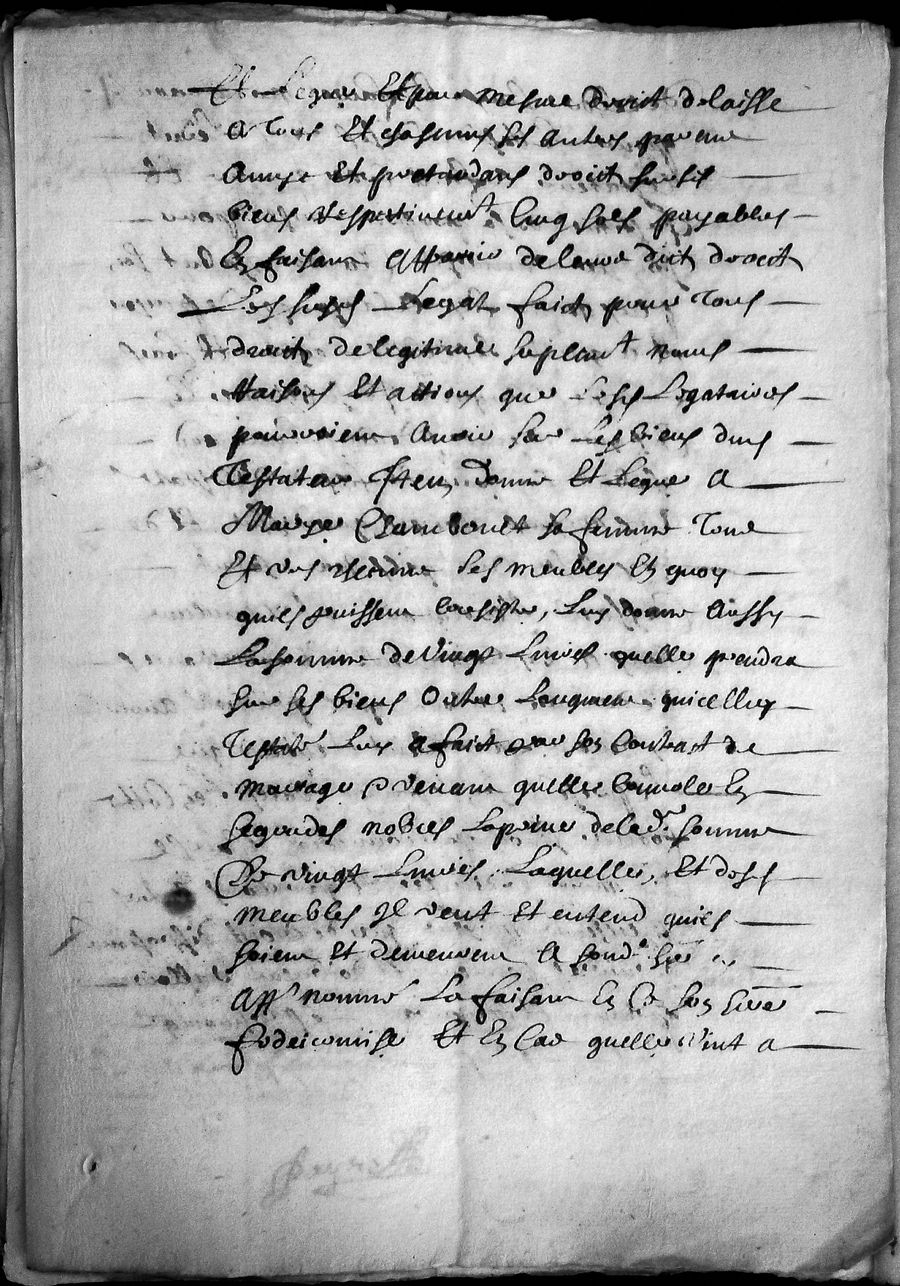 Et Legue Et par mesme droict delaisse
a tous Et chascuns ses autres parens
Amys Et pretendans droict sur ses
biens respectivemt Cinq sols payables
En faisant apparoir de leur dict droict
Lesd Legat faict pour tous
droict de legitime suplemt noms
Raisons Et actions que Lesd Legataires
pourroient Avoir sur Les biens dud
Testateur Item donne Et Legue A
Marye sa femme tous
Et ses meubles En quoy
quils puissent Consister, Luy donne Aussy
La somme de Vingt Livres quelle prendra
sur ses biens Outre Laugment quicelluy
Testatr Luy a faict par son Contract de
mariage Advenant quelle Convole En
segondes nopces La prive de lad. somme
De vingt Livres Laquelle, Et desd
meubles Il veut Et entend quils
soient Et demeurent A sond. her
App nommé La faisant En Ce son here
fideicomise Et En Cas quelle vint a